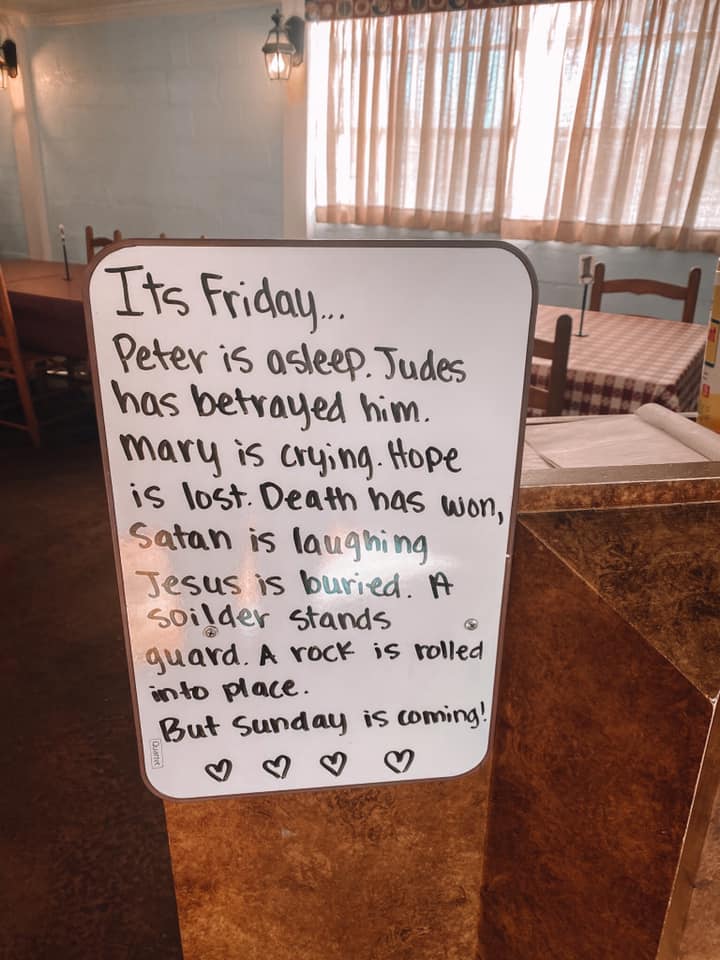 Its Friday...
Peter is asleep. Judes
has betrayed him.
mary is crying. Hope
is lost. Death has won,
Satan is laughing
Jesus is buried. A
soilder stands
guard. A rock is rolled
into place.
But Sunday is coming!
Quartet